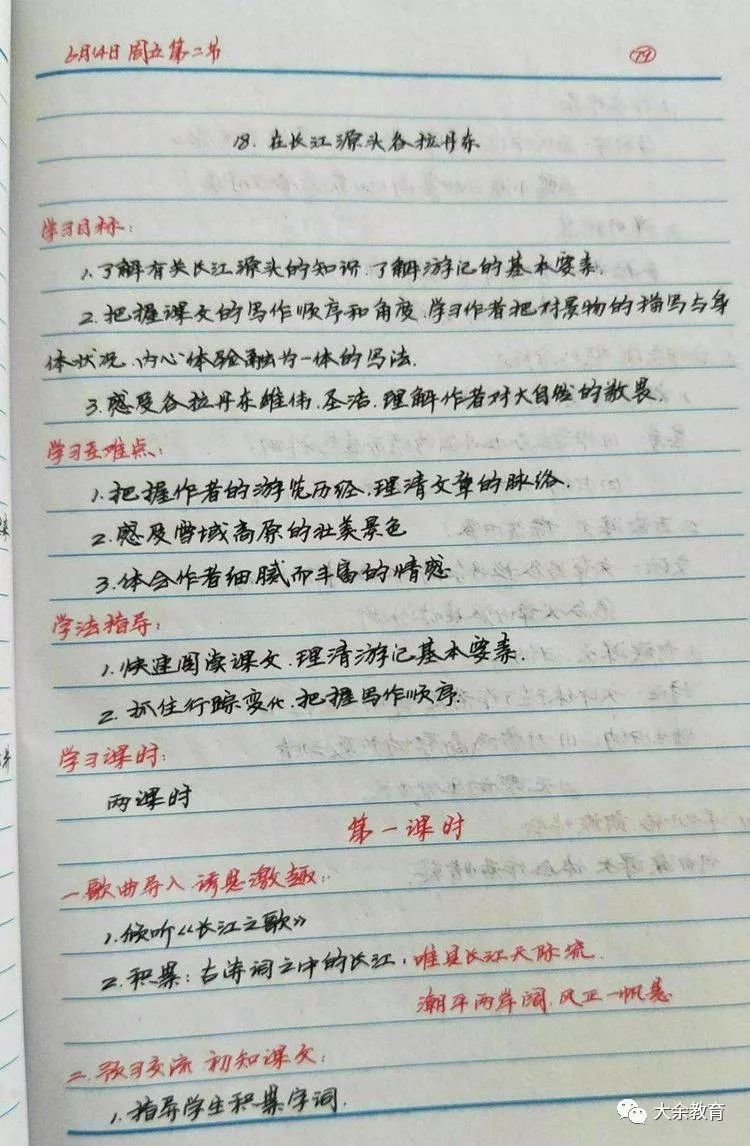 6月14日 周五第二节
79
18. 在长江源头各拉丹东
学习目标：
1. 了解有关长江源头的知识.了解游记的基本要素.
2. 把握课文的写作顺序和角度.学习作者把对景物的描写与身
体状况.内心体验融为一体的写法.
3. 感受各拉丹东雄伟.圣洁.理解作者对大自然的敬畏.
学习重难点：
1. 把握作者的游览历经.理清文章的脉络.
2. 感受雪域高原的壮美景色
3. 体会作者细腻而丰富的情感
学法指导：
1. 快速阅读课文.理清游记基本要素.
2. 抓住行踪变化.把握写作顺序.
学习课时：
两课时
第一课时
一.歌曲导入.诱思激趣：
1. 倾听《长江之歌》
2. 积累：古诗词之中的长江：唯见长江天际流.
潮平两岸阔.风正一帆悬
二.预习交流 初知课文：
1. 指导学生积累字词.
大余教育